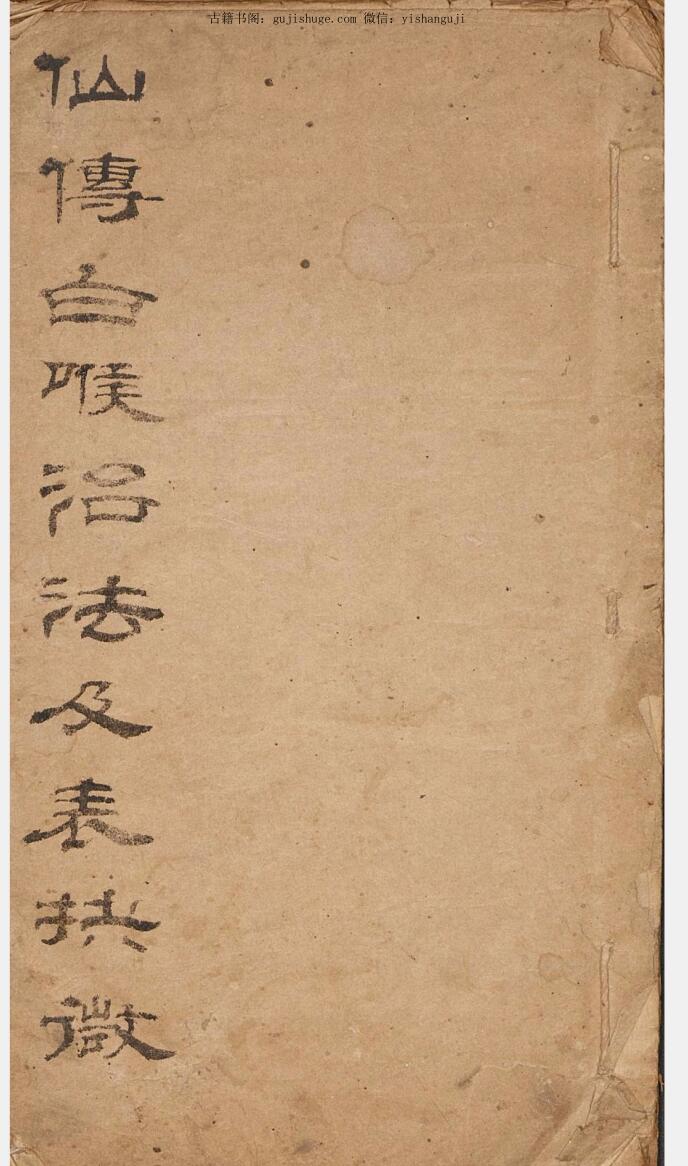 古籍书阁：gujishuge.com 微信：yishanguji
仙傳白喉治法及表抉微